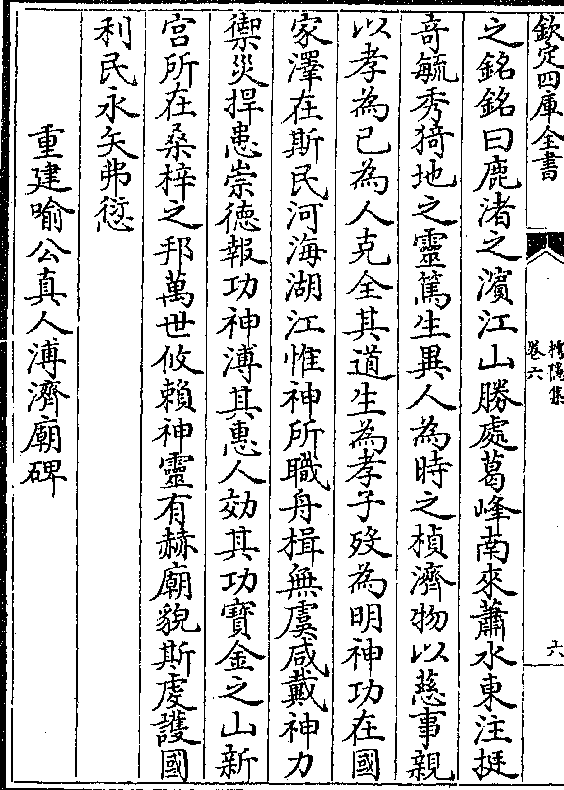 欽定四庫全書
樗隱集
卷六
六
之銘銘曰鹿渚之濱江山勝處葛峰南來蕭水東注挺
竒毓秀猗地之靈篤生異人為時之楨濟物以慈事親
以孝為己為人克全其道生為孝子殁為明神功在國
家澤在斯民河海湖江惟神所職舟楫無虞咸戴神力
禦災捍患崇德報功神溥其惠人効其功寳金之山新
宫所在桑梓之邦萬世攸賴神靈有赫廟貌斯䖍護國
利民永矢弗愆
重建喻公真人溥濟廟碑